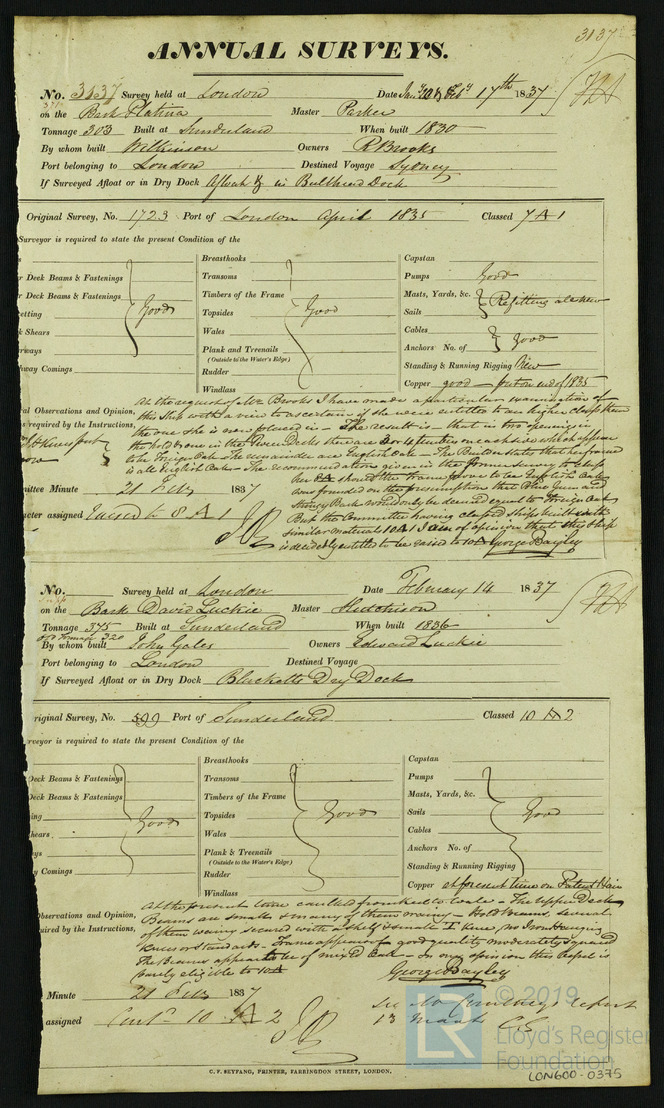 3137
ANNUAL SURVEYS.
No. 3137 Survey held at London Date 17th 1837
on the Bark Platina Master Parker
Tonnage 303 Built at Sunderland When built 1830
By whom built Wilkinson Owners R Brooks
Port belonging to London Destined Voyage Sydney
If Surveyed Afloat or in Dry Dock Afloat & in Bulhead Dock
Original Survey, No. 1723 Port of London April 1835 Classed 7 A 1
Surveyor is required to state the present Condition of the
r Deck Beams & Fastenings
r Deck Beams & Fastenings
etting
k Shears
rways
way Comings
Good
Breasthooks
Transoms
Timbers of the Frame
Topsides
Wales
Plank and Treenails
(Outside to the Water's Edge)
Rudder
Windlass
Good
Capstan
Pumps Good
Masts, Yards, &c.
Sails
Refitting
Cables
Anchors No. of
good
Standing & Running Rigging New
Copper good – put on end of 1835
al Observations and Opinion,
s required by the Instructions,
At the request of Mr Brooks I have made a particular examination of
this Ship with a view to ascertain if she were entitled to an higher class than
the one she is now placed in – The result is – that in two openings in
the hold & one in the Tween Decks there are 3 or 4 timbers on each side which appear
to be Foreign Oak the remainder are English Oak – The Builder states that her frame
is all English Oak – The recommendation given in the former survey to class
her 8A should the frame prove to be English Oak
was founded on the presumption that Blue Gum and
Stringy Bark would only be deemed equal to Foreign Oak
But the Committee having classed Ships built with
similar material 10A I am of opinion that this Ship
is decidedly entitled to be raised to 10A George Bayley
mittee Minute 21 Feby 1837
cter assigned Raised to 8 A 1
No. Survey held at London Date February 14 1837
on the Bark David Luckie Master Hutchison
Tonnage 345 Built at Sunderland When built 1836
Old Tonnage 320
By whom built John Gales Owners Edward Luckie
Port belonging to London Destined Voyage
If Surveyed Afloat or in Dry Dock Blacketts Dry Dock
riginal Survey, No. 599 Port of Sunderland Classed 10 A 2
rveyor is required to state the present Condition of the
Deck Beams & Fastenings
Deck Beams & Fastenings
ing
hears
ys
y Comings
Good
Breasthooks
Transoms
Timbers of the Frame
Topsides
Wales
Plank & Treenails
(Outside to the Water's Edge)
Rudder
Windlass
Good
Capstan
Pumps
Masts, Yards, &c.
Sails
Cables
Anchors No. of
Standing & Running Rigging
Good
Copper at present time on Patent Hair
Observations and Opinion,
uired by the Instructions,
At the present time caulked from keel to wale – The Upper Deck
Beams are small & many of them wainy – Hold beams several
of them wainy secured with a shelf & small T knee, no Iron Hanging
knees or Standards – Frame appears of a good quality moderately squared
The Beams appear to be of mixed Oak – in my opinion this Vessel is
barely eligible to 10A
George Bayley
Minute 21 Feby 1837
assigned Contd 10 A 2
See report
13 March
C. F. SEYFANG, PRINTER, FARRINGDON STREET, LONDON.
© 2019
LR
Lloyd's Register
Foundation
LON600-0375